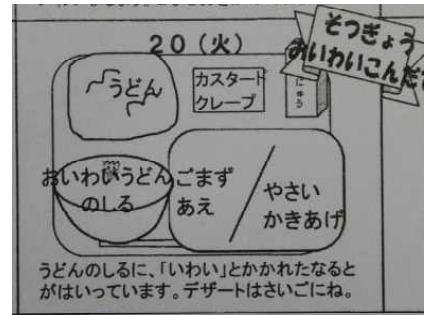 20(火)
そつぎょう
おいわいこんだ
うどん
カスタード
クレープ
にゅう
おいわいうどん
のしる
ごまず
あえ
やさい
かきあげ
うどんのしるに、「いわい」とかかれたなると
がはいっています。デザートはさいごにね。